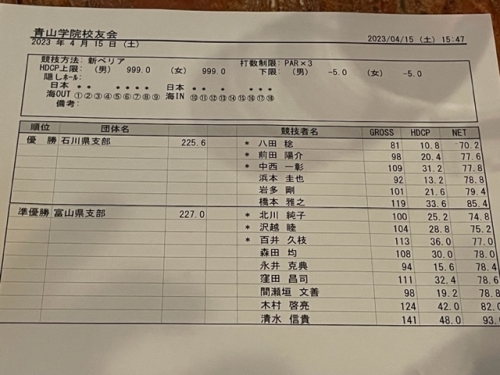 青山学院校友会
2023 年 4 月 15 日 (土) 2023/04/15 (土) 15:47
競技方法: 新ペリア 打数制限: PAR×3
HDCP上限: (男) 999.0 (女) 999.0 下限: (男) -5.0 (女) -5.0
隠しホール:
日本 日本
海OUT ①②③④⑤⑥⑦⑧⑨ 海IN ⑩⑪⑫⑬⑭⑮⑯⑰⑱
備考:
順位 団体名 競技者名 GROSS HDCP NET
優 勝 石川県支部 225.6 * 八田 稔 81 10.8 70.2
* 前田 陽介 98 20.4 77.6
* 中西 一彰 109 31.2 77.8
浜本 圭也 92 13.2 78.8
岩多 剛 101 21.6 79.4
橋本 雅之 119 33.6 85.4
準優勝 富山県支部 227.0 * 北川 純子 100 25.2 74.8
* 沢越 睦 104 28.8 75.2
* 百井 久枝 113 36.0 77.0
森田 均 108 30.0 78.0
永井 克典 94 15.6 78.4
窪田 昌司 111 32.4 78.6
間瀬垣 文善 98 19.2 78.8
木村 啓亮 124 42.0 82.0
清水 信貴 141 48.0 93.